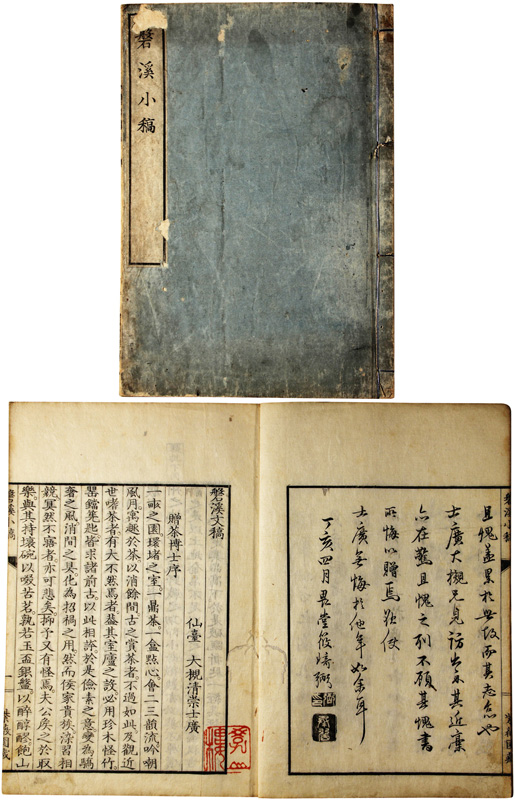 磐溪小稿
士廣大槻兄見訪出示其近稾
亦在驚且愧之列不顧甚愧書
所悔以贈焉欲使
士廣無悔於他年如余耳
丁亥四月畏堂筱崎弼
磐溪文稿
仙臺 大槻清崇士廣
贈茶博士序
一畝之園環堵之室一鼎茶一盒點心會二三韻流吟嘲
風月寓趣於茶以消餘間古之賞茶者不過如此及觀近
世嗜茶者有大不然焉者葢其室廬之設必用珍木怪竹
罌鐺筅匙皆求諸前古以此相誇於是儉素之意變為驕
奢之風消間之具化為招禍之用然而侯家貴族淫習相
競冥然不寤者亦可悲矣抑予又有怪焉夫公矣之於取
樂與其持壞碗以啜苦茗孰若玉盃銀盤以醉醇醪飽山
磐溪小稿
一